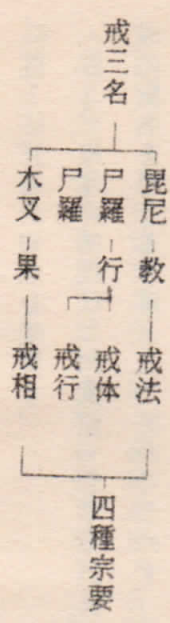 戒三名
毘尼 教 戒法
尸羅 行 戒体
尸羅 戒行
木叉 果 戒相
四種宗要